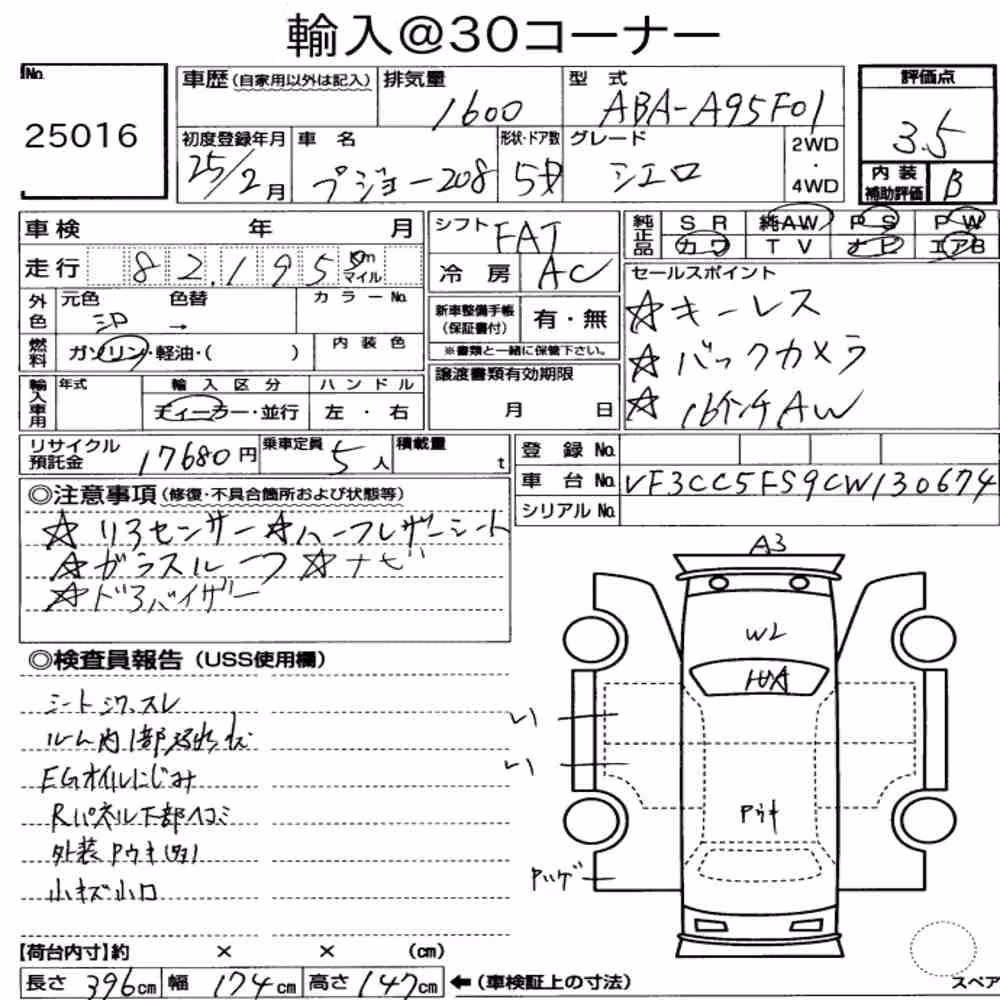 輸入@30コーナー
No.
25016
車歴(自家用以外は記入)
排気量
1600
型式
ABA-A95F01
評価点
3.5
初度登録年月
25/2月
車名
プジョー208
形状・ドア数
5D
グレード
シエロ
2WD
・
4WD
内装
補助評価
B
車検 年 月
走行 82,195
Km
マイル
外色
元色
色替
→
カラーNo.
燃料
ガソリン・軽油・( )
内装色
輸入車用
年式
輸入区分
ディーラー・並行
ハンドル
左・右
シフト
FAT
冷房
AC
新車整備手帳
(保証書付)
有・無
※書類と一緒に保管下さい。
譲渡書類有効期限
月 日
純正品
SR 純AW PS PW
カワ TV ナビ エアB
セールスポイント
☆キーレス
☆バックカメラ
☆16インチAW
リサイクル
預託金
17680円
乗車定員
5人
積載量
t
登録No.
車台No. VF3CC5FS9CW130674
シリアルNo.
◎注意事項(修復・不具合箇所および状態等)
☆リアセンサー☆ハーフレザーシート
☆ガラスルーフ☆ナビ
☆ドアバイザー
◎検査員報告(USS使用欄)
シートシワ、スレ
EGオイルにじみ
Rパネル下部ヘコミ
小キズ小凹
A3
W2
Pウキ
【荷台内寸】約 × × (cm)
長さ 396cm 幅 174cm 高さ 147cm
←(車検証上の寸法)
スペア